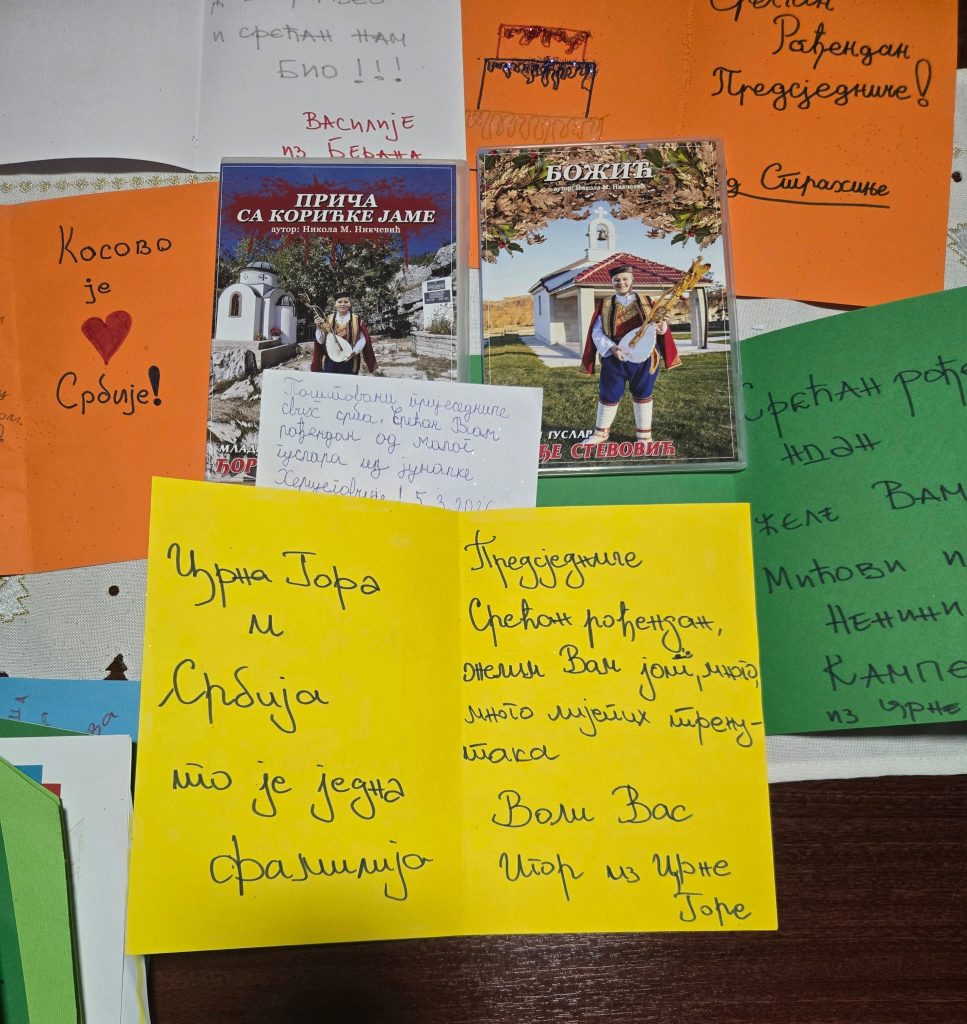 и срећан нам
био!!!
Василије
из Берана
Рођендан
Предсједниче!
Страхиње
Косово
је
Србије!
ПРИЧА
СА КОРИЋКЕ ЈАМЕ
аутор: Никола М. Никчевић
БОЖИЋ
аутор: Никола М. Никчевић
ГУСЛАР
ЂЕ СТЕВОВИЋ
Поштовани предсједниче
свих срба, Срећан Вам
рођендан од малог
гуслара из јуначке
Херцеговине! 5.3.
Срећан рође
ндан
желе Вам
Мићови и
Ненини
Кампе
из црне
Црна Гора
и
Србија
то је једна
фамилија
Предсједниче
Срећан рођендан,
желим Вам још, много,
много лијепих трену-
така
Воли Вас
Игор из Црне
Горе